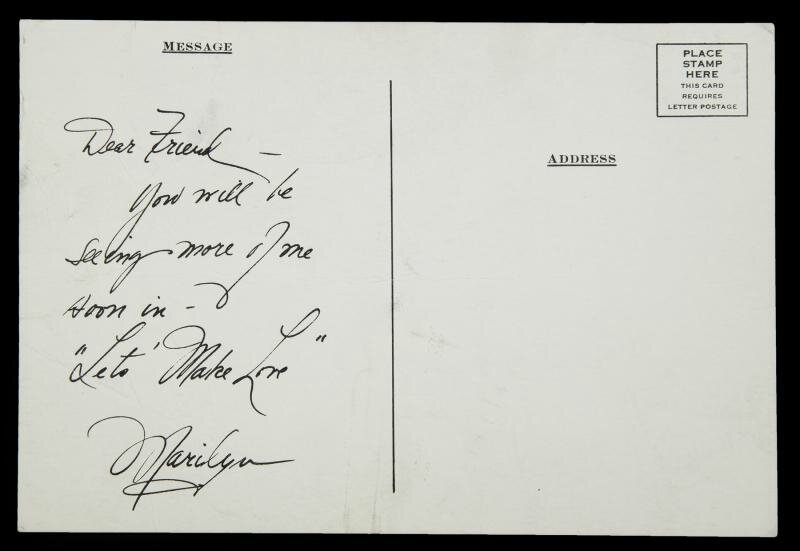 MESSAGE
Dear Friend —
You will be
seeing more of me
soon in —
"Lets' Make Love"
Marilyn
PLACE
STAMP
HERE
THIS CARD
REQUIRES
LETTER POSTAGE
ADDRESS